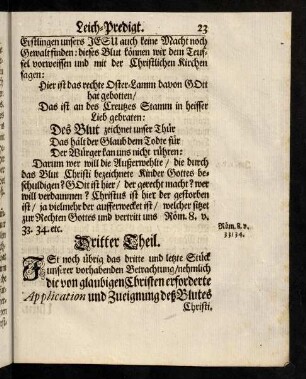 Leich-Predigt. 23
Erstlingen unsers JESU auch keine Macht noch
Gewalt finden: dieses Blut können wir dem Teuf-
fel vorweissen und mit der Christlichen Kirchen
sagen:
Hier ist das rechte Oster-Lamm davon GOtt
hat gebotten/
Das ist an des Creutzes Stamm in heisser
Lieb gebraten:
Des Blut zeichnet unser Thür
Das hält der Glaub dem Todte für
Der Würger kan uns nicht rühren:
Darum wer will die Außerwehlte / die durch
das Blut Christi bezeichnete Kinder Gottes be-
schuldigen? GOtt ist hier/ der gerecht macht? wer
will verdammen? Christus ist hier der gestorben
ist / ja vielmehr der aufferwecket ist / welcher sitzet
zur Rechten Gottes und vertritt uns Röm. 8. v.
33. 34. etc.
Röm. 8. v.
33. 34.
Dritter Theil.
ISt noch übrig das dritte und letzte Stück
unserer vorhabenden Betrachtung/nehmlich
die von glaubigen Christen erforderte
Application und Zueignung deß Blutes
Christi.